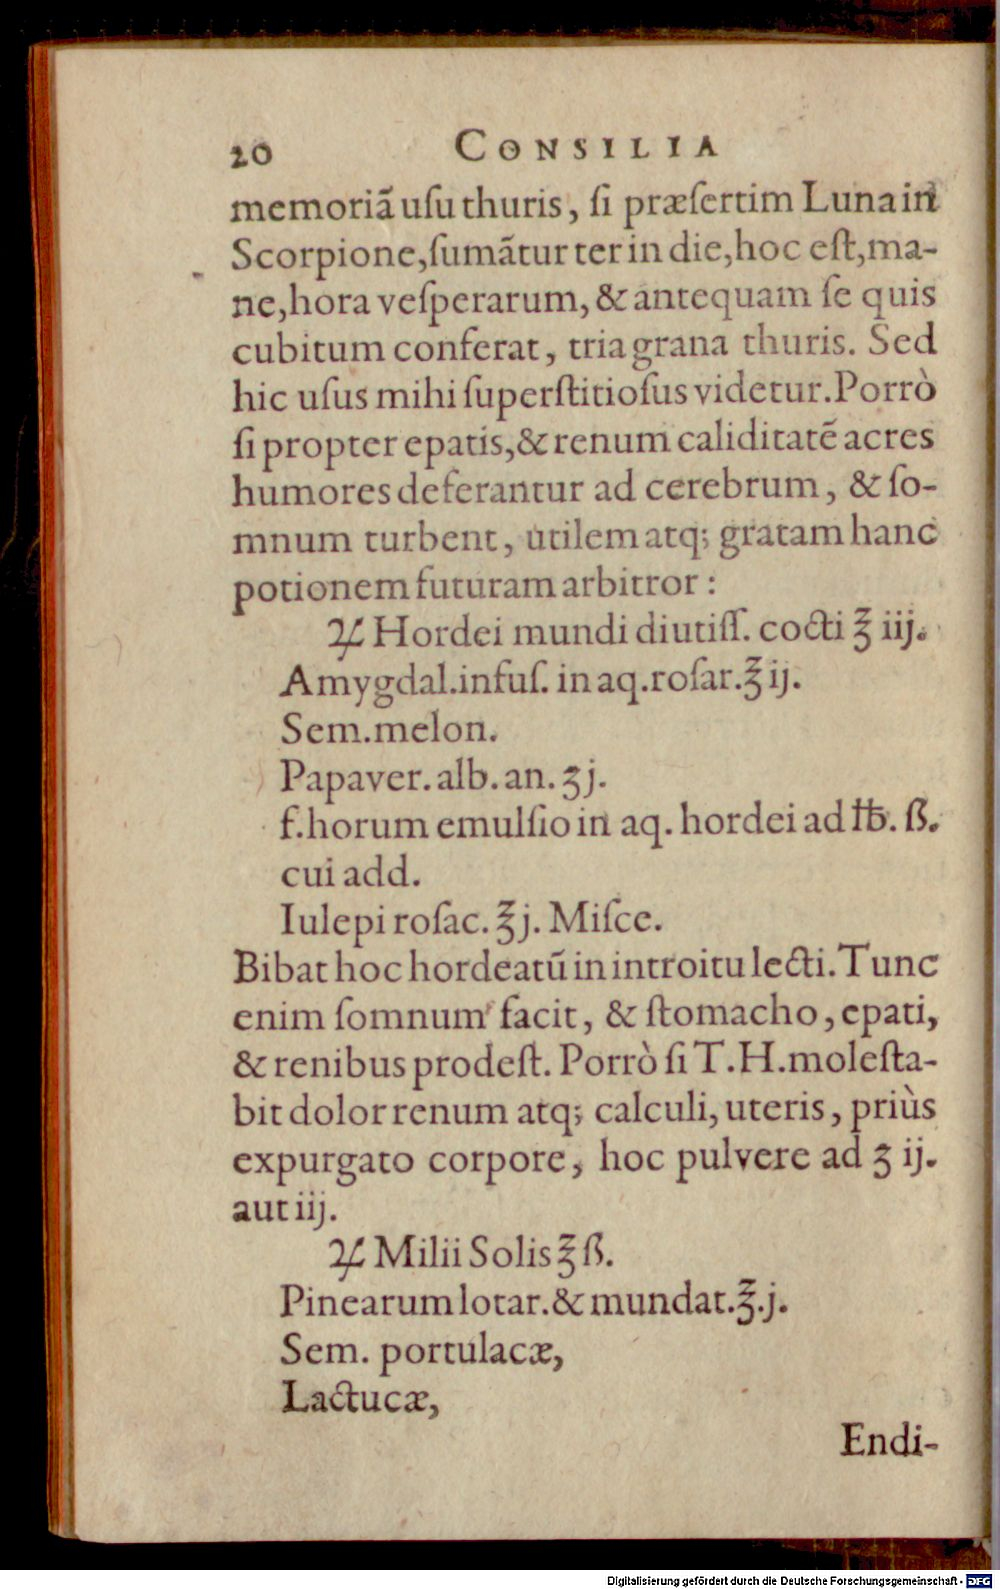 20 CONSILIA
memoriã uſu thuris, ſi præſertim Luna in
Scorpione, ſumãtur ter in die, hoc eſt, ma-
ne, hora veſperarum, & antequam ſe quis
cubitum conferat, tria grana thuris. Sed
hic uſus mihi ſuperſtitioſus videtur. Porrò
ſi propter epatis, & renum caliditatẽ acres
humores deferantur ad cerebrum, & ſo-
mnum turbent, utilem atq; gratam hanc
potionem futuram arbitror:
♃ Hordei mundi diutiſſ. cocti ℥ iij.
Amygdal. infuſ. in aq. roſar. ℥ ij.
Sem. melon.
Papaver. alb. an. ʒ j.
f. horum emulſio in aq. hordei ad ℔. ß.
cui add.
Iulepi roſac. ℥ j. Miſce.
Bibat hoc hordeatũ in introitu lecti. Tunc
enim ſomnum facit, & ſtomacho, epati,
& renibus prodeſt. Porrò ſi T. H. moleſta-
bit dolor renum atq; calculi, uteris, priùs
expurgato corpore, hoc pulvere ad ʒ ij.
aut iij.
♃ Milii Solis ℥ ß.
Pinearum lotar. & mundat. ℥. j.
Sem. portulacæ,
Lactucæ,
Endi-
Digitalisierung gefördert durch die Deutsche Forschungsgemeinschaft - DFG